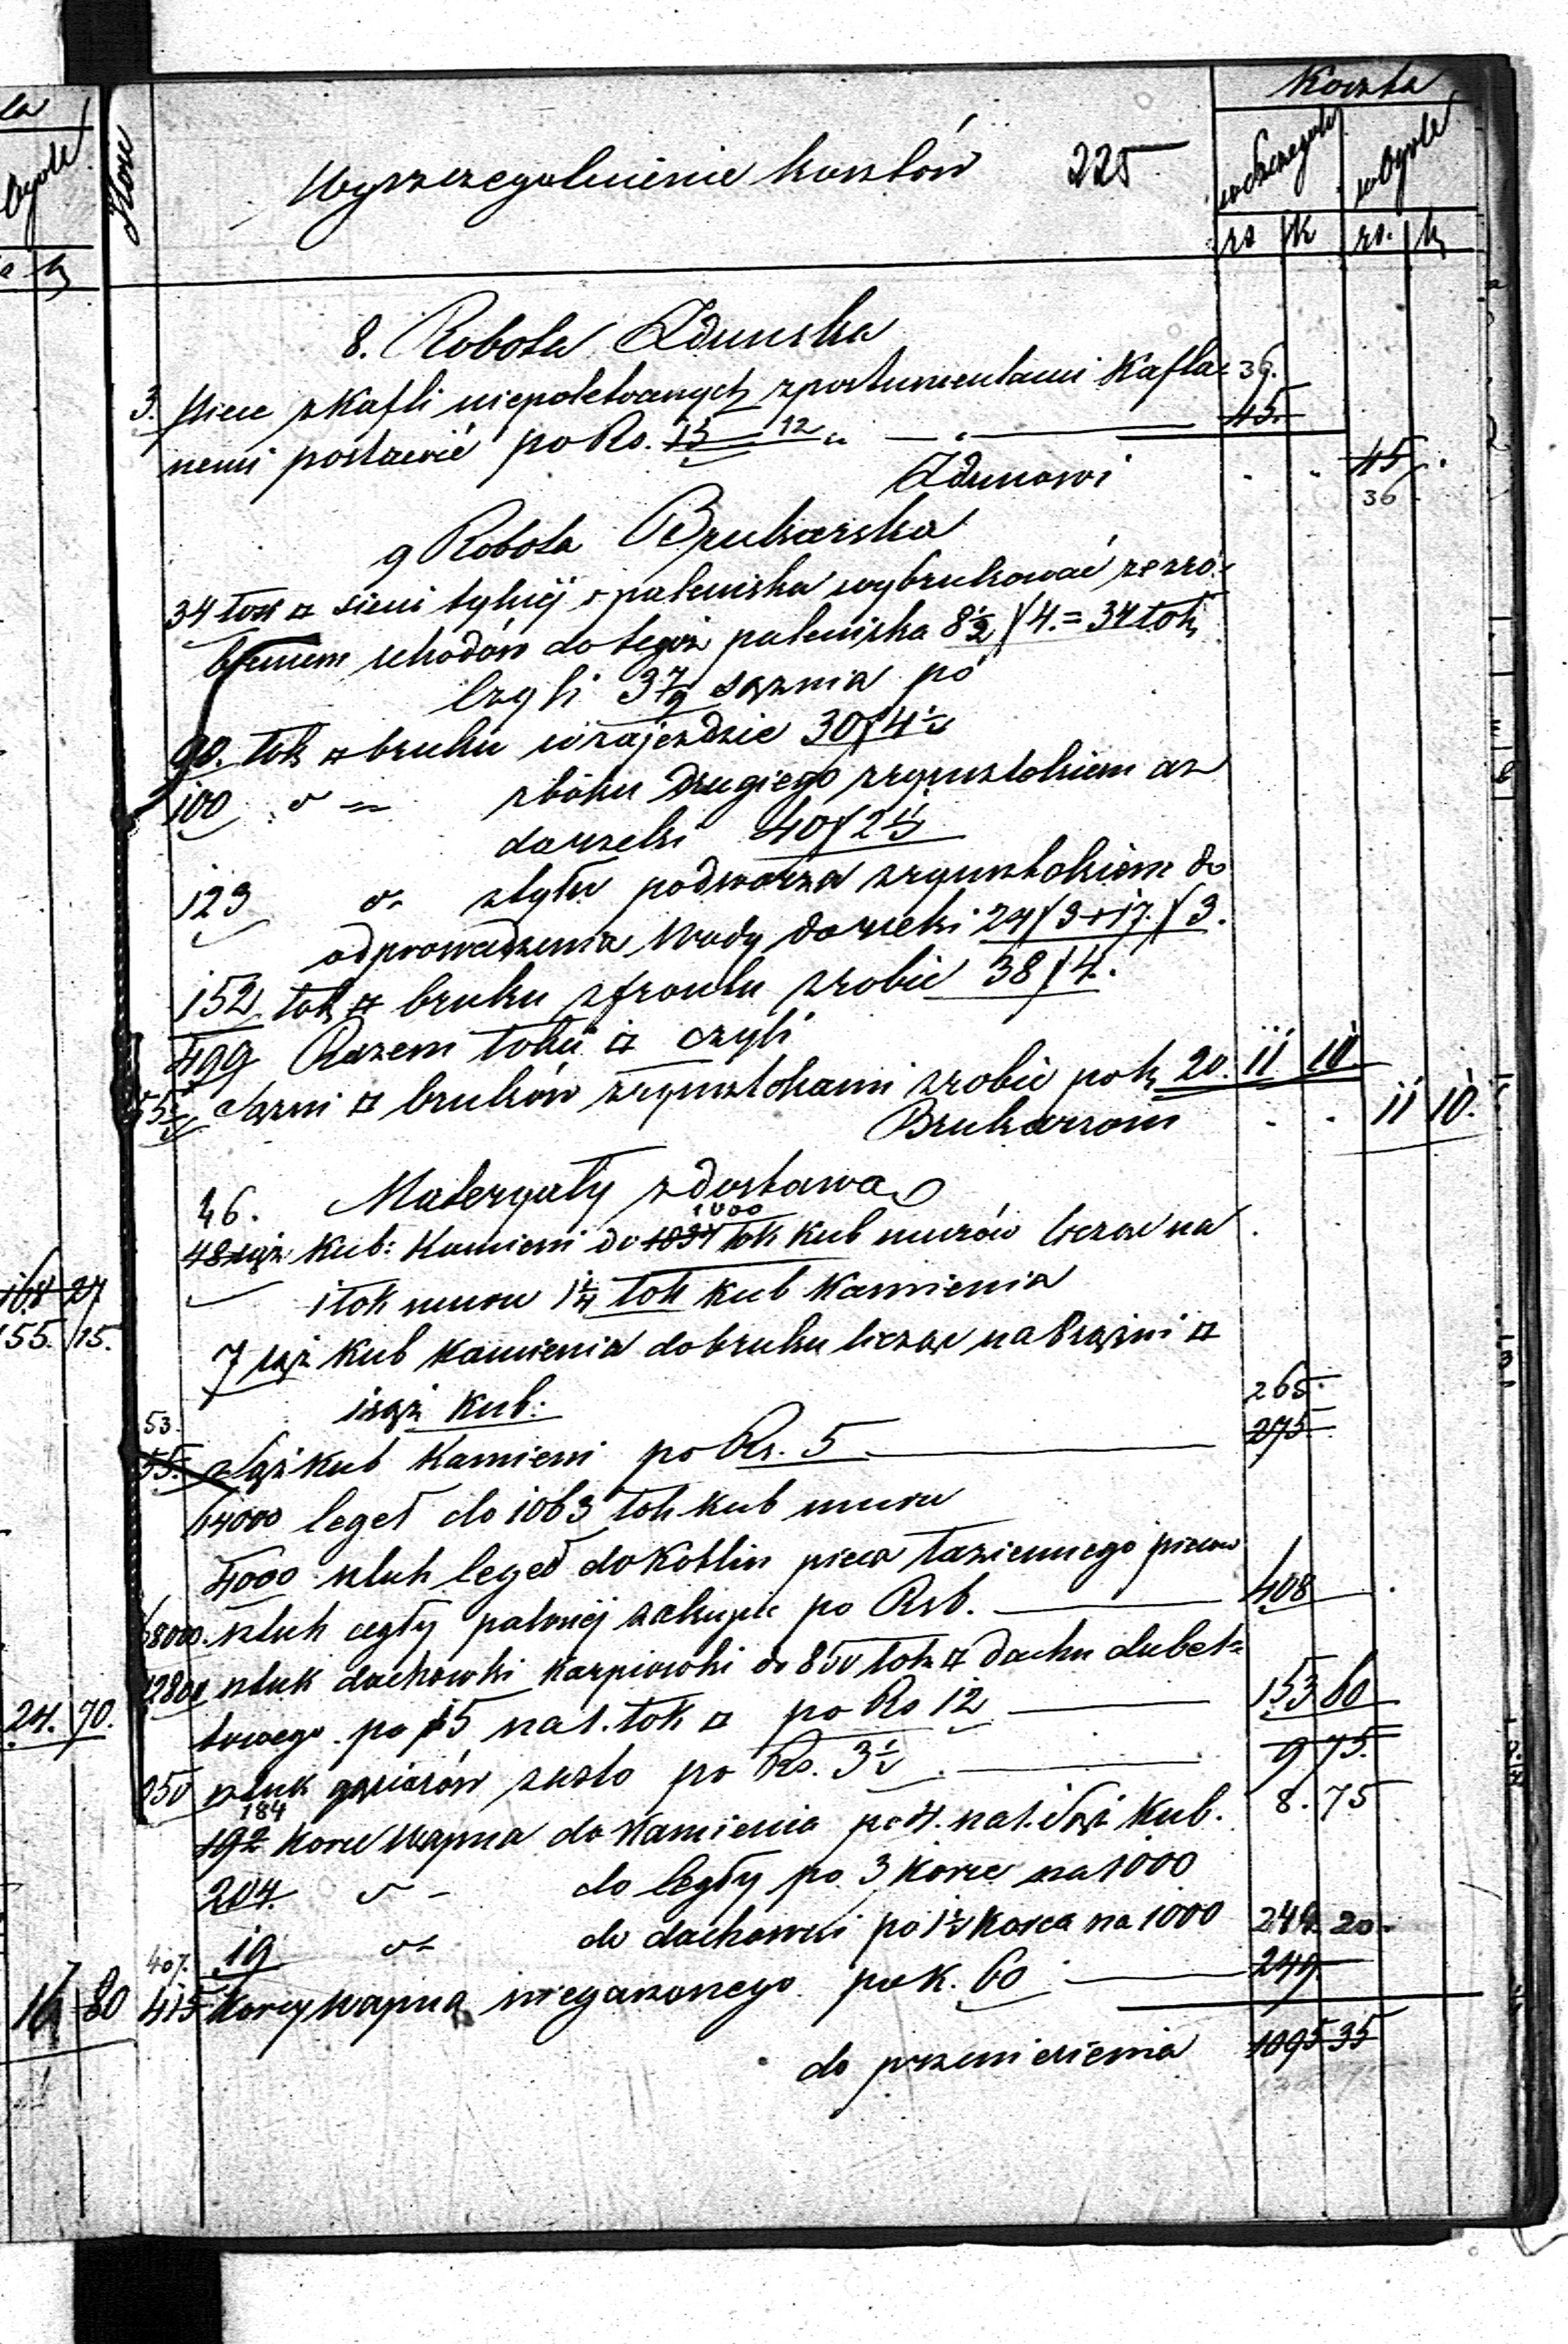 Koszta
Ilość
Wyszczegulnienie kosztów 225
wszczegule
w Ogole
rs k rs. k
8. Robota Zduńska
3. Piece z Kafli niepolewanych z postumentami Kafla= 36.
nemi postawić po Rs. 15 12 „ — „ — 45.
Zdunowi . . 45 .
36
9 Robota Brukarska
34 tok □ sieni tylnéj i paleniska wybrukować ze zro=
bieniem schodów do tegoż paleniska 8½ / 4. = 34 tok
Czyli 3 7/9 sążnia po
90. tok □ bruku w zajezdzie 30/4½
100 „ „ z boku drugiego z rynsztokiem az
do rzeki 40/2½
123 „ z tyłu podwórza z rynsztokiem do
odprowadzenia Wody do rzeki 24/3+17./3.
152 tok □ bruku z frontu zrobić 38/4.
499 Razem toku □ czyli
55½ Sążni □ bruków z rynsztokami zrobić po k. 20. 11 10.
Brukarzom . . 11 10.
Materyały z dostawą
46. 1000
48 sąż Kub: Kamieni do 1034 tok kub murów licząc na
1 tok muru 1¼ tok kub Kamienia
7 sąż Kub Kamienia do bruku licząc na 8 sążni □
1 sąż Kub: 265.
53.
55. Sąż kub Kamieni po Rs. 5 — 275
64000 Cegeł do 1063 tok kub muru
4000 sztuk Cegeł do Kotlin pieca łaziennego piecow
68000. sztuk cegły palonéj zakupić po Rs 6. — 408
12800 sztuk dachówki karpiówki do 850 tok □ dachu dubel=
towego po 15 na 1. tok □ po Rs 12 — 153 60
250 sztuk gąsiorów zasto po Rs. 3½ . — 9 75.
184 8. 75
192 Korce Wapna do Kamienia po 4. na 1. Sąż Kub.
204. „ - do Cegły po 3 Korce na 1000
19 „ do dachówki po 1½ Korca na 1000 244 20.
407.
415 Korcy Wapna niegaszonego po k. 60 — 249
do przeniesienia 1095 35
168 27
155. 15.
24. 70.
80